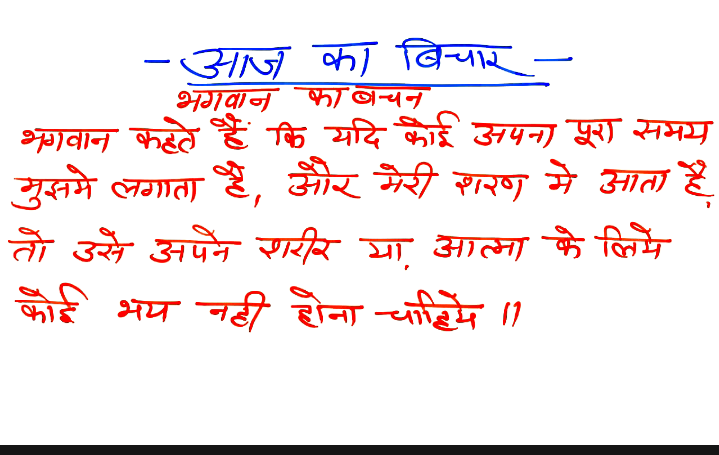 - आज का बिचार -
भगवान का बचन
भगवान कहते हैं कि यदि कोई अपना पूरा समय
मुझमे लगाता है, और मेरी शरण मे आता है,
तो उसे अपने शरीर या, आत्मा के लिये
कोई भय नही होना चाहिये ।।